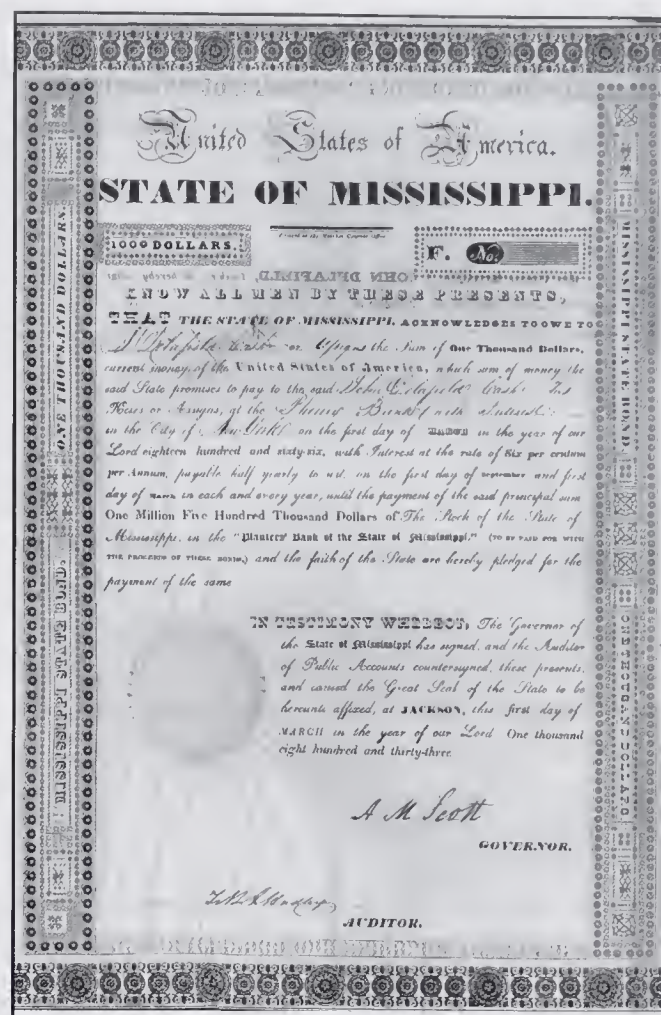 United States of America.
STATE OF MISSISSIPPI.
1000 DOLLARS.
F. No.
JOHN DELAFIELD,
KNOW ALL MEN BY THESE PRESENTS,
THAT THE STATE OF MISSISSIPPI, ACKNOWLEDGES TO OWE TO
or Assigns the Sum of One Thousand Dollars,
current money of the United States of America, which sum of money the
said State promises to pay to the said John Delafield Cash
Heirs or Assigns, at the Phenix Bank
in the City of New York on the first day of MARCH in the year of our
Lord eighteen hundred and sixty-six, with Interest at the rate of Six per centum
per Annum, payable half yearly to wit, on the first day of September and first
day of March in each and every year, until the payment of the said principal sum
One Million Five Hundred Thousand Dollars of The Stock of the State of
Mississippi, in the "Planters' Bank of the State of Mississippi," (TO BE PAID FOR WITH
THE PROCEEDS OF THESE BONDS,) and the faith of the State are hereby pledged for the
payment of the same
IN TESTIMONY WHEREOF, The Governor of
the State of Mississippi has signed, and the Auditor
of Public Accounts countersigned, these presents,
and caused the Great Seal of the State to be
hereunto affixed, at JACKSON, this first day of
MARCH in the year of our Lord One thousand
eight hundred and thirty-three
A M Scott
GOVERNOR.
AUDITOR.
ONE THOUSAND DOLLARS.
MISSISSIPPI STATE BOND.
MISSISSIPPI STATE BOND.
ONE THOUSAND DOLLARS